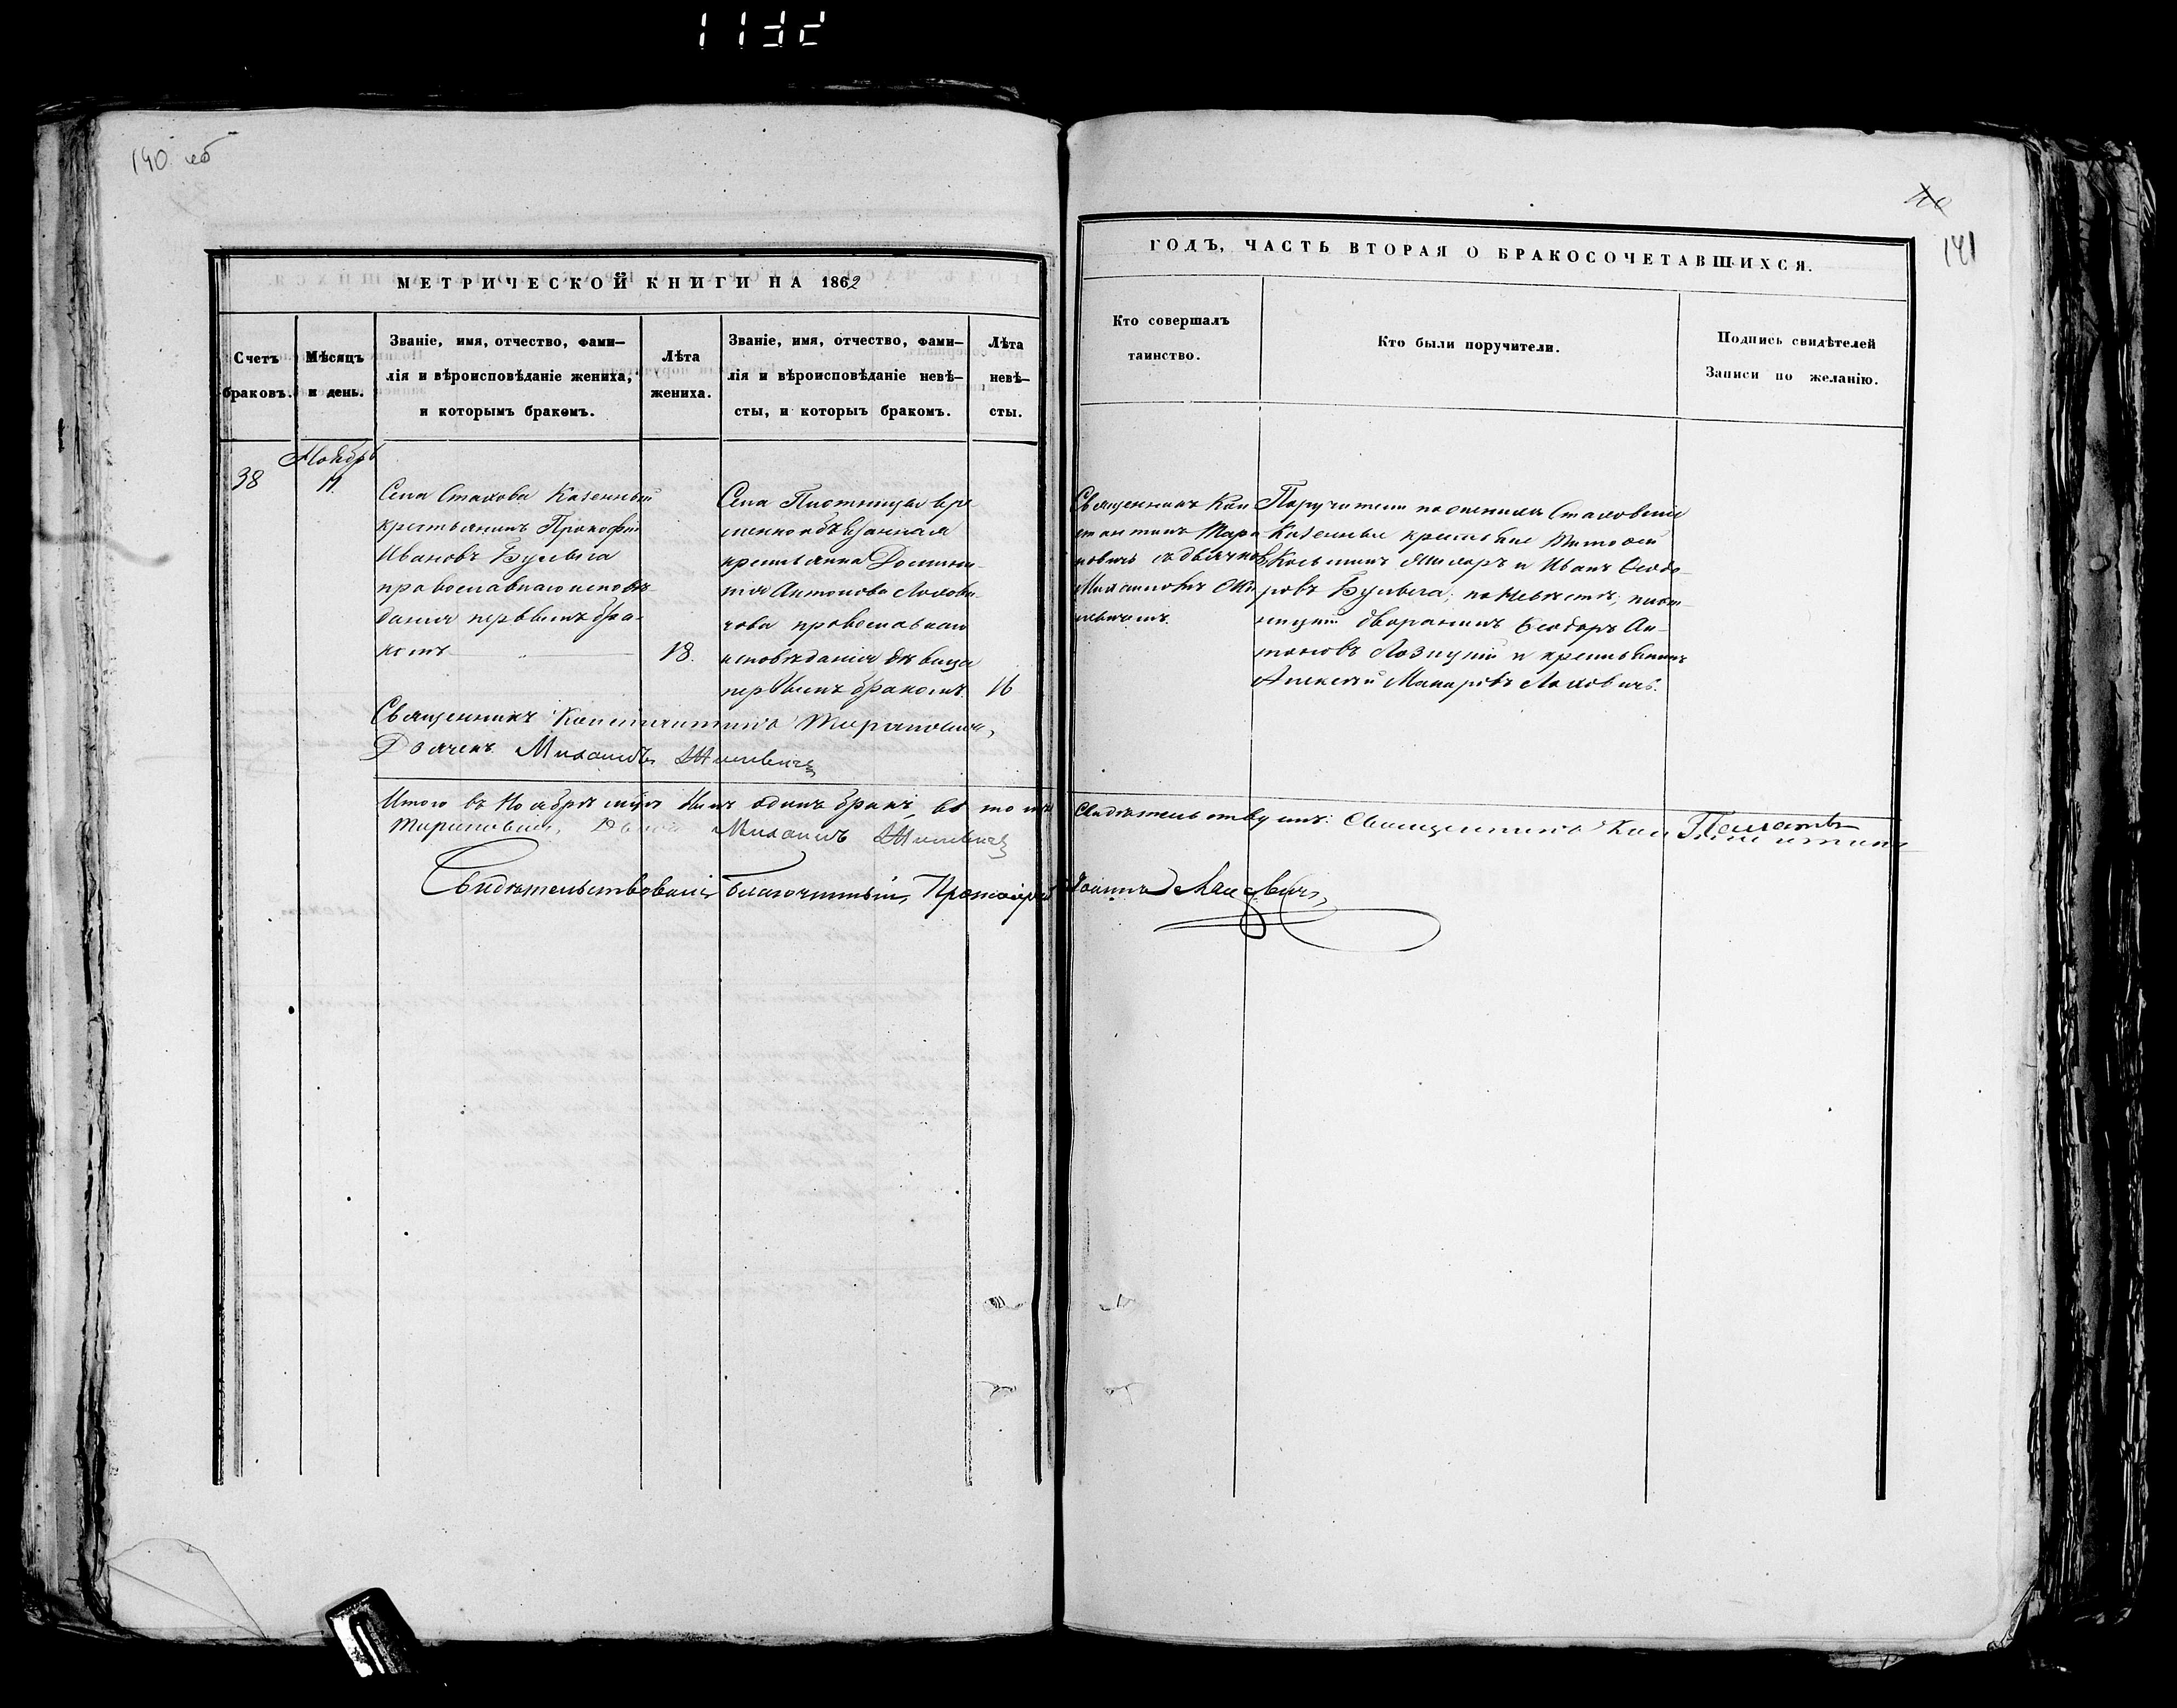 140 об
40
141
МЕТРИЧЕСКОЙ КНИГИ НА 1862
ГОДЪ, ЧАСТЬ ВТОРАЯ О БРАКОСОЧЕТАВШИХСЯ.
Счетъ
браковъ.
Мѣсяцъ
и день.
Званіе, имя, отчество, фами–
лія и вѣроисповѣданіе жениха,
и которымъ бракомъ.
Лѣта
жениха.
Званіе, имя, отчество, фами–
лія и вѣроисповѣданіе невѣ–
сты, и которыъ бракомъ.
Лѣта
невѣ–
сты.
Кто совершалъ
таинство.
Кто были поручители.
Подпись свидѣтелей
Записи по желанію.
38
Ноябрь
11.
Села Стахова Казенный
крестьянинъ Прокофій
Ивановъ Бульвга
православнаго исповѣ-
данія первымъ бра-
комъ
18.
Села Плотницы вре-
меннообязанная
крестьянка Домини-
кія Антонова Лохови-
чова православнаго
исповѣданія дѣвица
первымъ бракомъ.
16
Священникъ Кон
стантинъ Тара-
новичъ съ дьячкомъ
Михаиломъ Жи-
левичемъ.
Поручители по женихѣ Стаховскіе
Казенные крестьяне Тимофей
Косьминъ и Иванъ Ѳеодо-
ровъ Бульвга; по невѣстѣ; плот-
ницкій дворянинъ Ѳеодоръ Ан-
тоновъ Лозицкій и крестьянинъ
Алексѣй Макаровъ Лоховичъ.
Священникъ Константинъ Тарановичъ,
Дьячекъ Михаилъ Жилевичъ
Итого въ Ноябрѣ мцѣ одинъ бракъ, въ томъ свидѣтельствуютъ: Священникъ Константинъ
Тарановичъ, Дьячекъ Михаилъ Жилевичъ
Свидѣтельствовалъ Благочинный, Протоіерей Іоаннъ